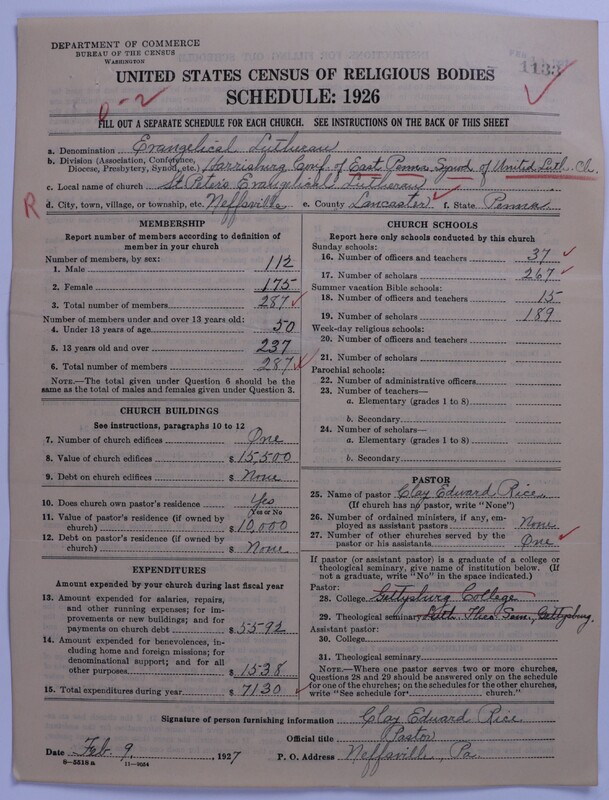 DEPARTMENT OF COMMERCE
BUREAU OF THE CENSUS
WASHINGTON
1133
UNITED STATES CENSUS OF RELIGIOUS BODIES
SCHEDULE: 1926
D-2
FILL OUT A SEPARATE SCHEDULE FOR EACH CHURCH. SEE INSTRUCTIONS ON THE BACK OF THIS SHEET
a. Denomination Evangelical Lutheran
b. Division (Association, Conference, Diocese, Presbytery, Synod, etc.) Harrisburg Conf. of East Penna Synod of United Luth. Ch.
c. Local name of church St Peter's Evangelical Lutheran
R
d. City, town, village, or township, etc. Neffsville e. County Lancaster f. State Penna
MEMBERSHIP
Report number of members according to definition of member in your church
Number of members, by sex:
1. Male 112
2. Female 175
3. Total number of members 287
Number of members under and over 13 years old:
4. Under 13 years of age 50
5. 13 years old and over 237
6. Total number of members 287
NOTE.—The total given under Question 6 should be the same as the total of males and females given under Question 3.
CHURCH BUILDINGS
See instructions, paragraphs 10 to 12
7. Number of church edifices One
8. Value of church edifices $ 15,500
9. Debt on church edifices $ None
10. Does church own pastor's residence Yes
Yes or No
11. Value of pastor's residence (if owned by church) $ 10,000
12. Debt on pastor's residence (if owned by church) $ None
EXPENDITURES
Amount expended by your church during last fiscal year
13. Amount expended for salaries, repairs, and other running expenses; for improvements or new buildings; and for payments on church debt $ 5592
14. Amount expended for benevolences, including home and foreign missions; for denominational support; and for all other purposes $ 1538
15. Total expenditures during year $ 7130
CHURCH SCHOOLS
Report here only schools conducted by this church
Sunday schools:
16. Number of officers and teachers 37
17. Number of scholars 267
Summer vacation Bible schools:
18. Number of officers and teachers 15
19. Number of scholars 189
Week-day religious schools:
20. Number of officers and teachers
21. Number of scholars
Parochial schools:
22. Number of administrative officers
23. Number of teachers—
a. Elementary (grades 1 to 8)
b. Secondary
24. Number of scholars—
a. Elementary (grades 1 to 8)
b. Secondary
PASTOR
25. Name of pastor Clay Edward Rice
(If church has no pastor, write "None")
26. Number of ordained ministers, if any, employed as assistant pastors None
27. Number of other churches served by the pastor or his assistants One
If pastor (or assistant pastor) is a graduate of a college or theological seminary, give name of institution below. (If not a graduate, write "No" in the space indicated.)
Pastor:
28. College Gettysburg College
29. Theological seminary Luth. Theo. Sem., Gettysburg.
Assistant pastor:
30. College
31. Theological seminary
NOTE.—Where one pastor serves two or more churches, Questions 28 and 29 should be answered only on the schedule for one of the churches; on the schedules for the other churches, write "See schedule for church."
Signature of person furnishing information Clay Edward Rice
Official title Pastor
Date Feb. 9, 1927 P. O. Address Neffsville, Pa.
8-5518 a 11-9054